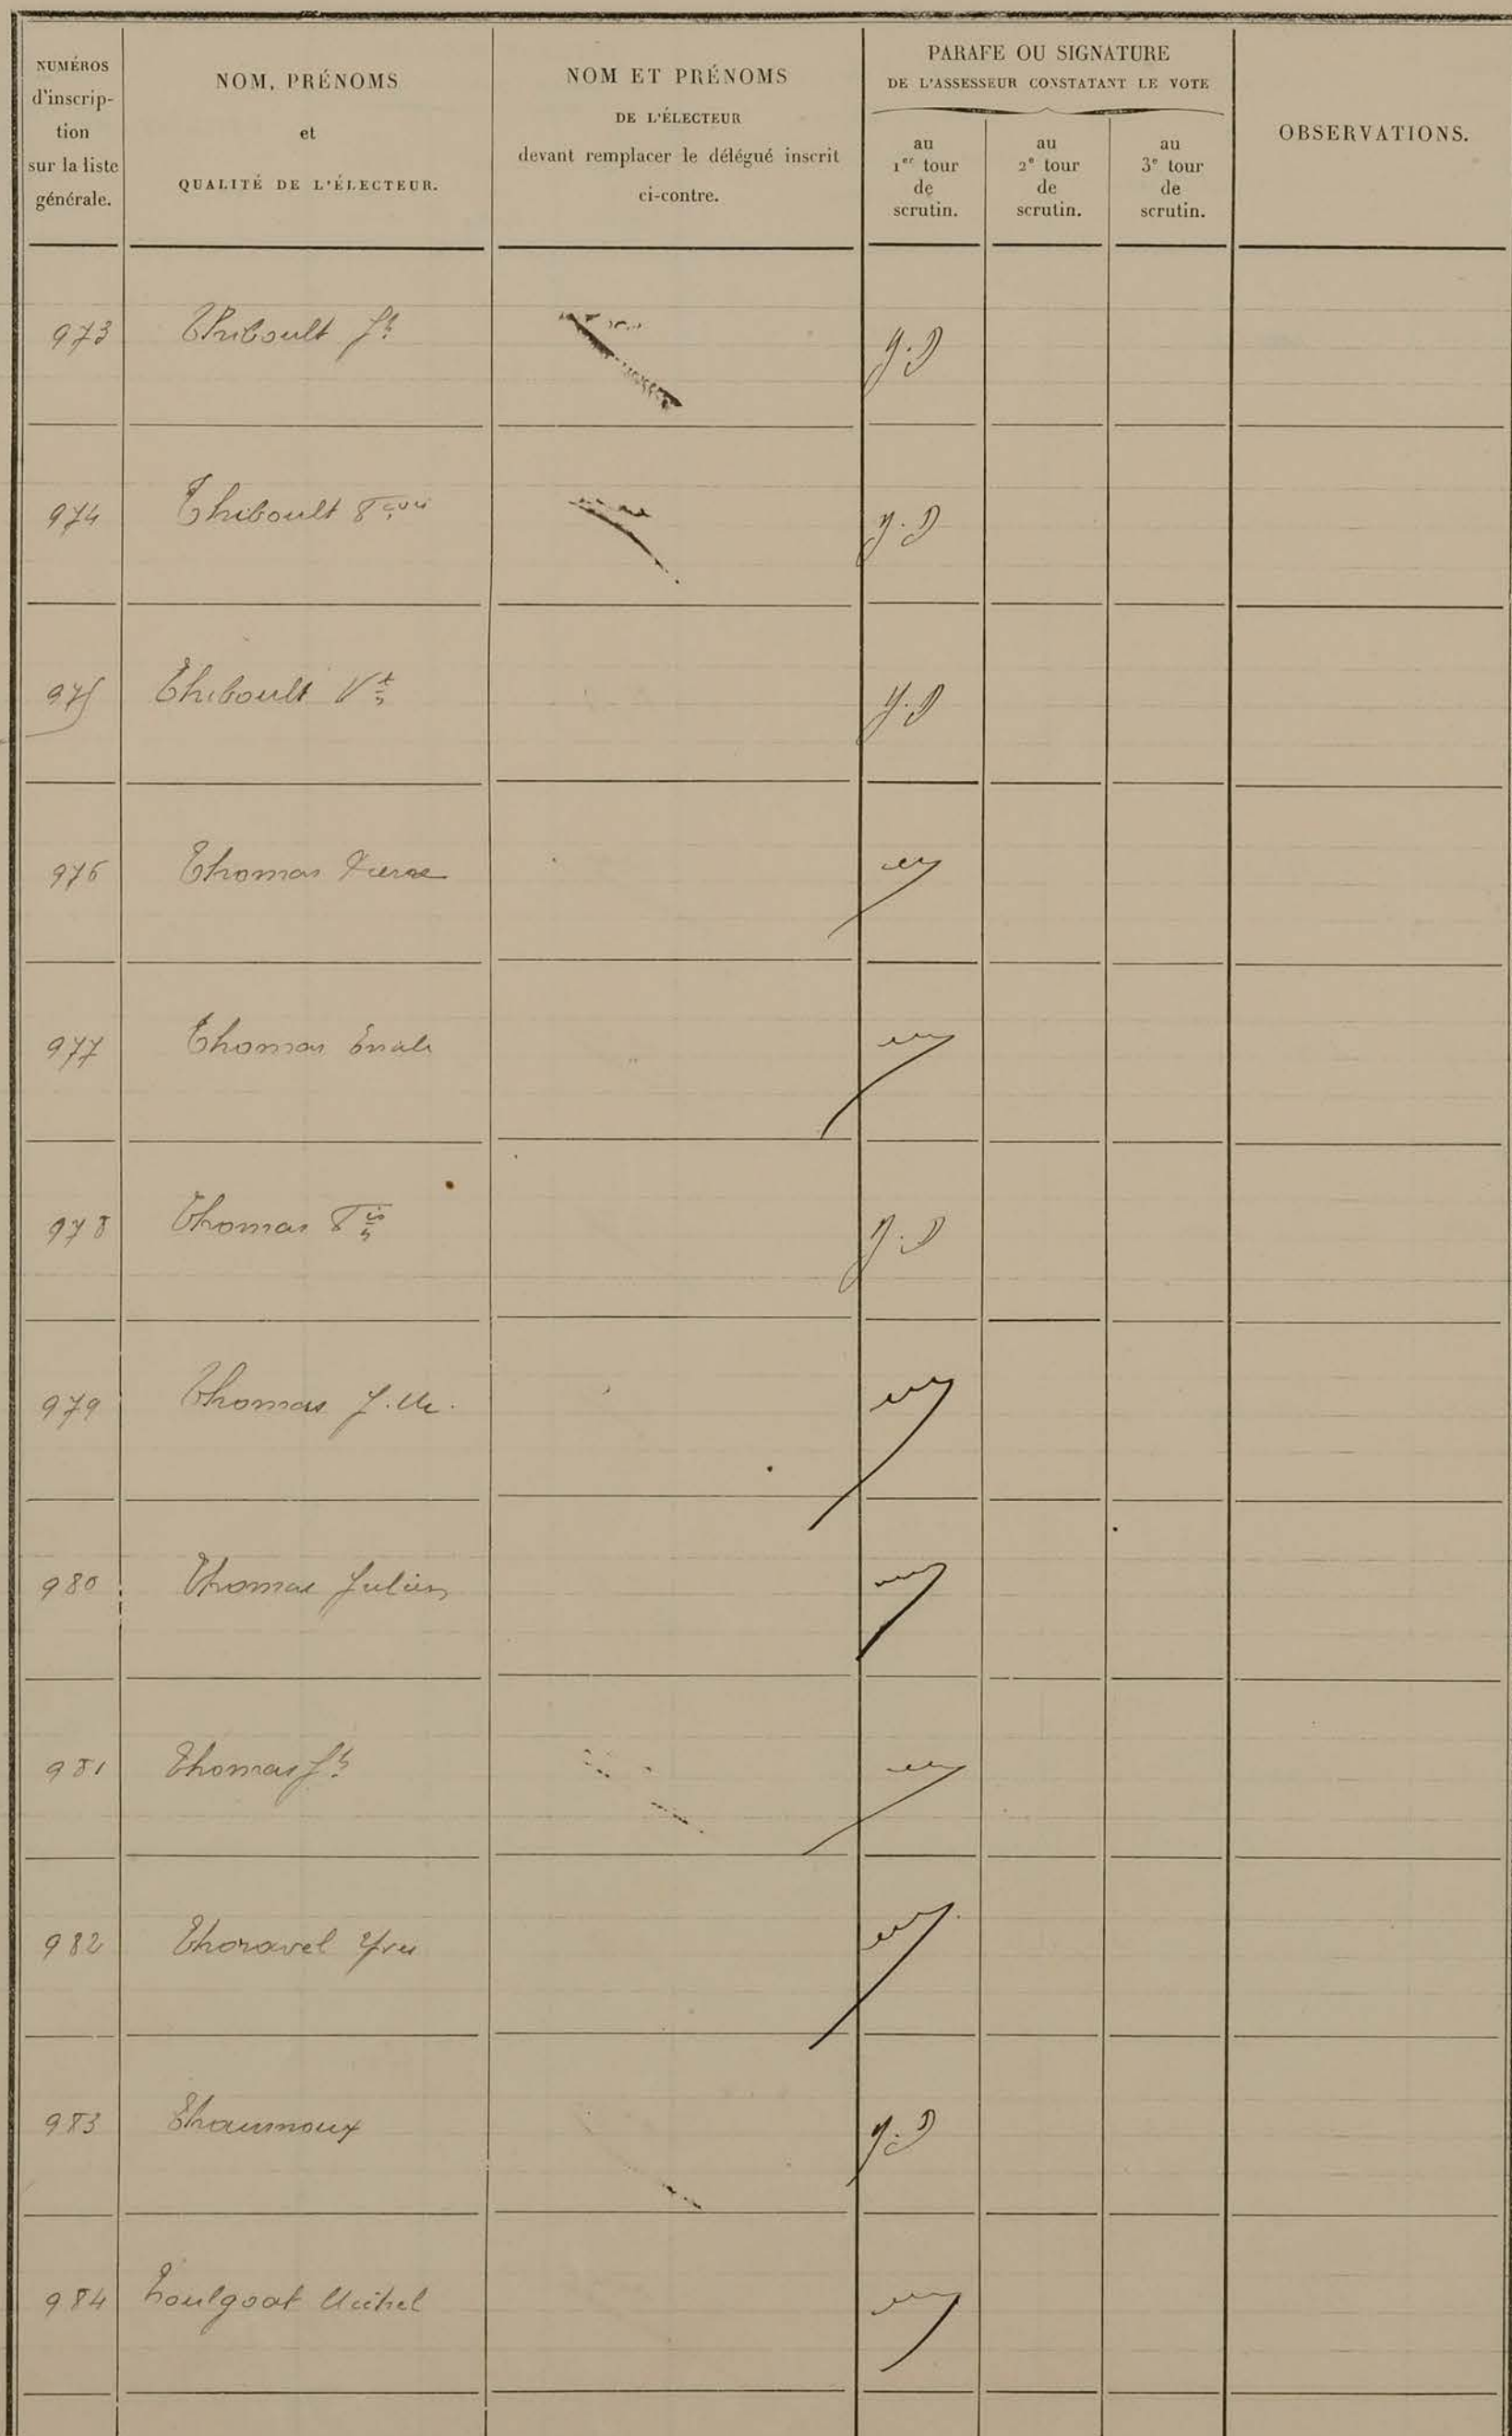 NUMÉROS
d'inscrip-
tion
sur la liste
générale.
NOM, PRÉNOMS
et
QUALITÉ DE L'ÉLECTEUR.
NOM ET PRÉNOMS
DE L'ÉLECTEUR
devant remplacer le délégué inscrit
ci-contre.
PARAFE OU SIGNATURE
DE L'ASSESSEUR CONSTATANT LE VOTE
au
1er tour
de
scrutin.
au
2e tour
de
scrutin.
au
3e tour
de
scrutin.
OBSERVATIONS.
973 Thiboult Jh
974 Thiboult
975 Thiboult Vt
976 Thomas Pierre
977 Thomas
978 Thomas
979 Thomas J.M.
980 Thomas Julien
981 Thomas Jh
982 Thoravel Yves
983
984 Toulgoat Michel